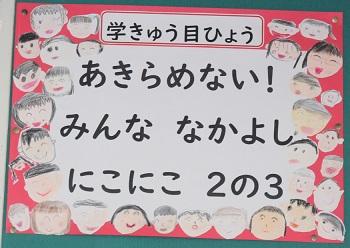 学きゅう目ひょう
あきらめない!
みんな なかよし
にこにこ 2の3